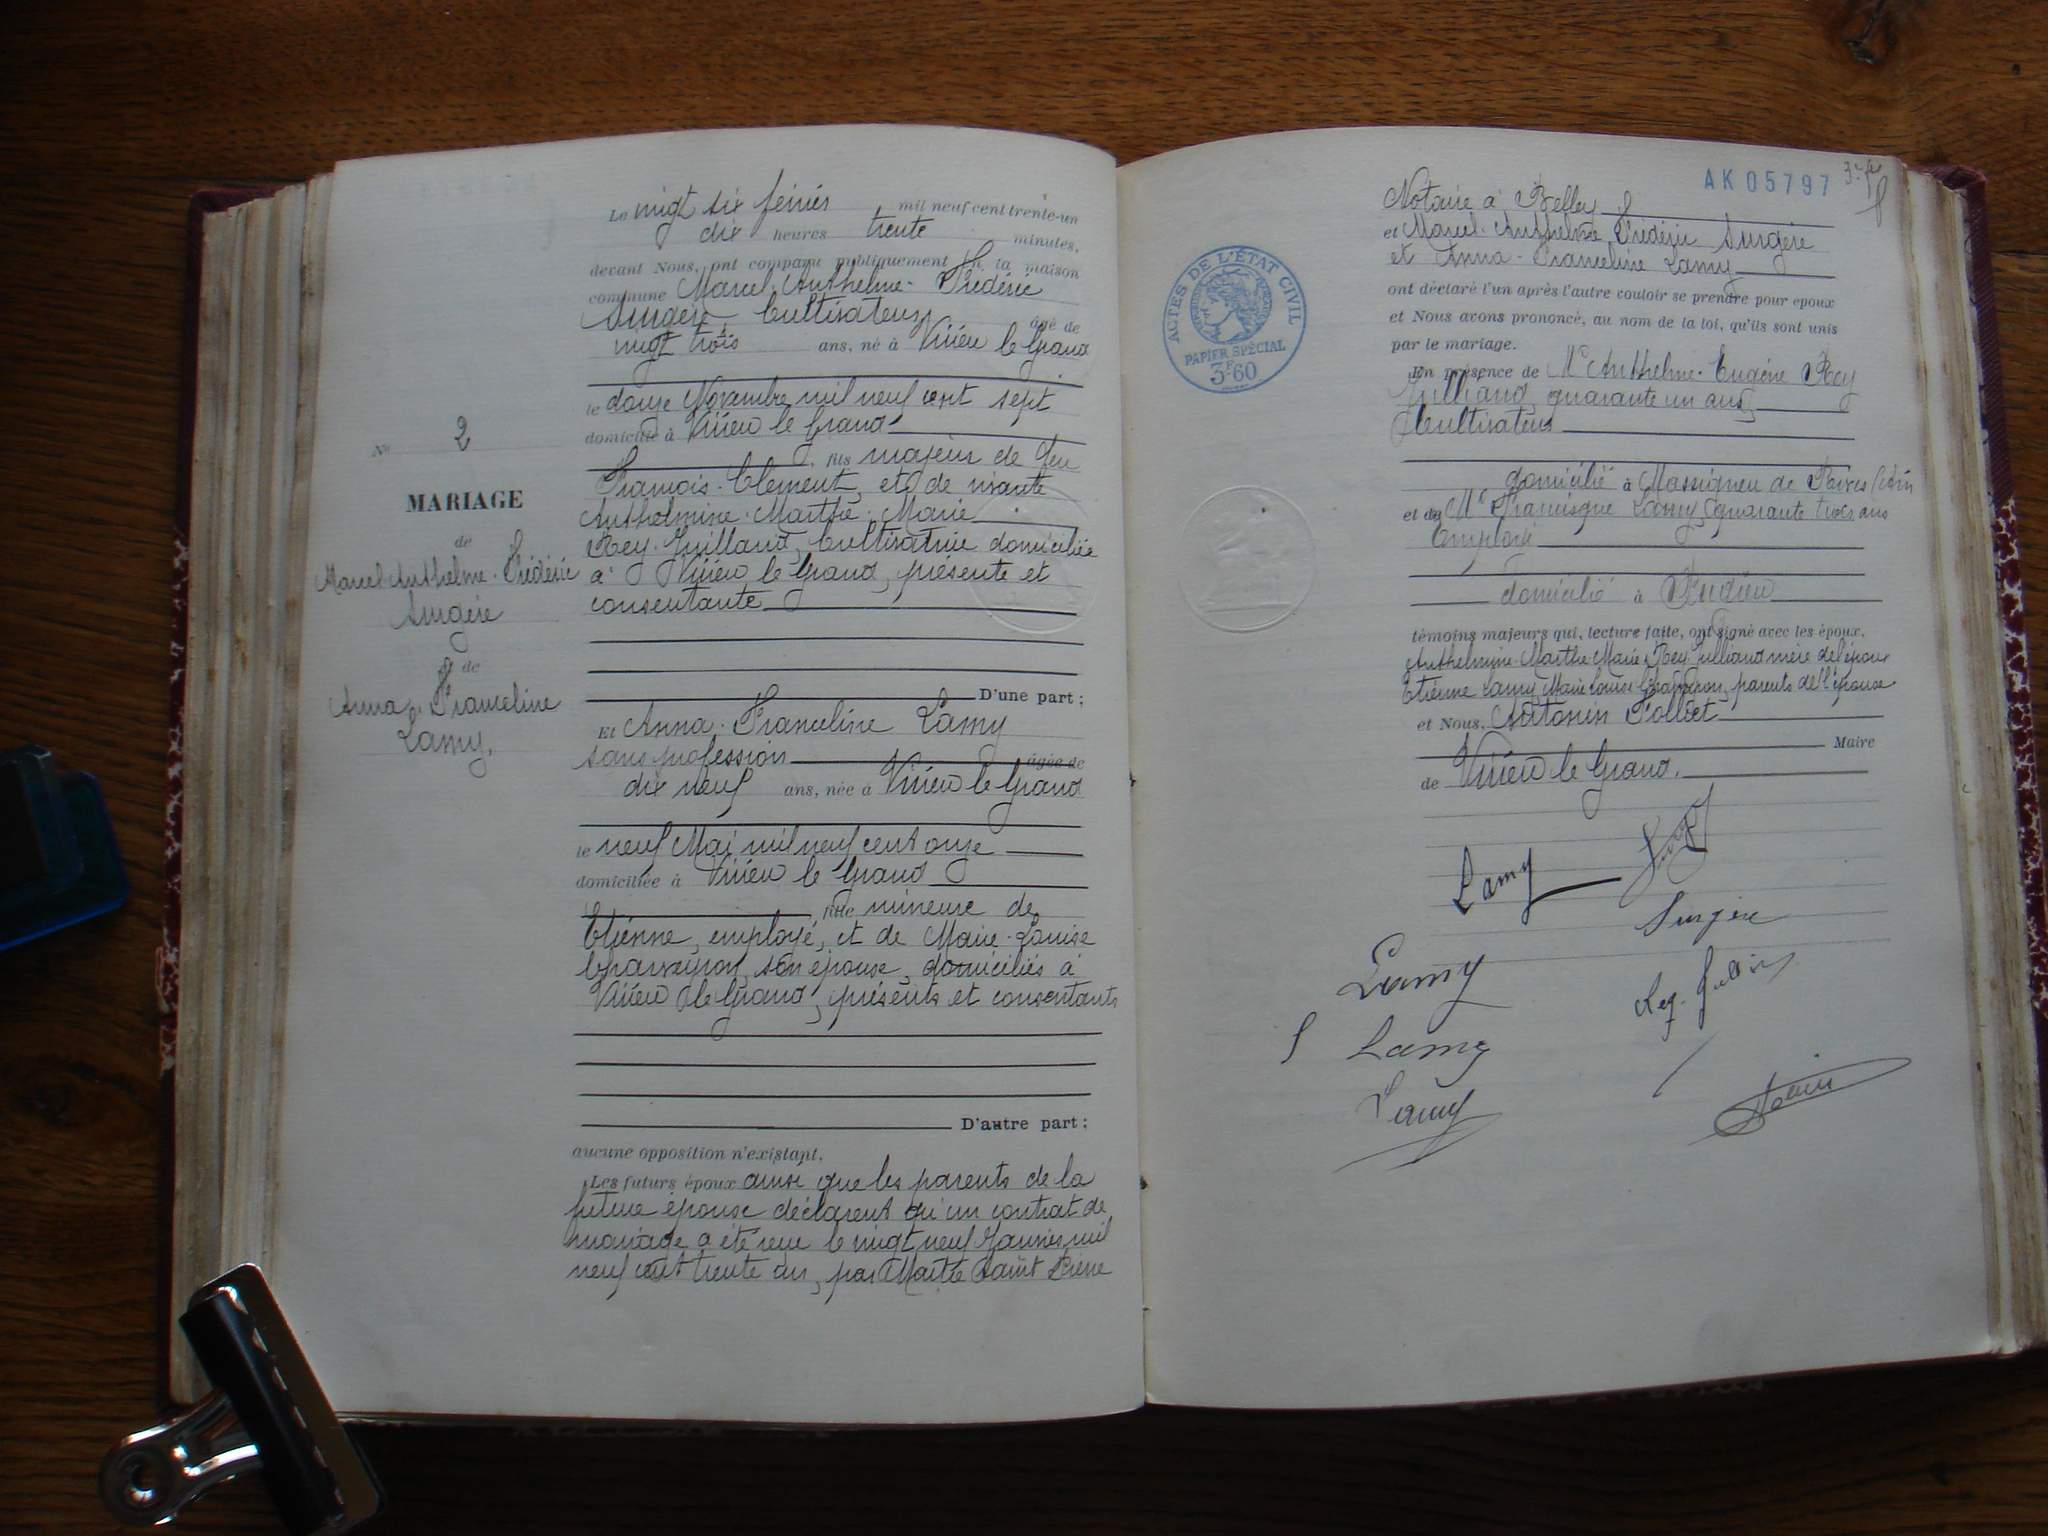 Le vingt six février mil neuf cent trente-un
dix heures trente minutes,
devant Nous, ont comparu publiquement en la maison
commune Marcel-Anthelme-Frédéric
Surgère, Cultivateur, âgé de
vingt trois ans, né à Virieu le Grand
le douze Novembre mil neuf cent sept
domicilié à Virieu le Grand
, fils majeur de feu
François-Clément, et de vivante
Anthelmine-Marthe-Marie
Rey-Juilland, Cultivatrice domiciliée
à Virieu le Grand, présente et
consentante
D'une part;
Et Anna-Franceline Lamy
sans profession âgée de
dix neuf ans, née à Virieu le Grand
le neuf Mai mil neuf cent onze
domiciliée à Virieu le Grand
, fille mineure de
Etienne, employé, et de Marie-Louise
Charveyron, son épouse, domiciliés à
Virieu le Grand, présents et consentants
D'autre part;
aucune opposition n'existant.
Les futurs époux ainsi que les parents de la
future épouse déclarent qu'un contrat de
mariage a été reçu le vingt neuf Janvier mil
neuf cent trente un, par Maître Saint Pierre
No 2
MARIAGE
de
Marcel-Anthelme-Frédéric
Surgère
& de
Anna-Franceline
Lamy.
AK 05797
Notaire à Belley
et Marcel-Anthelme Frédéric Surgère
et Anna-Franceline Lamy
ont déclaré l'un après l'autre vouloir se prendre pour époux
et Nous avons prononcé, au nom de la loi, qu'ils sont unis
par le mariage.
En présence de Mr Anthelme-Eugène Rey
Juilland, quarante un ans,
Cultivateur
domicilié à Massigneu de Rives (Ain
et de Mr Francisque Lamy, quarante trois ans
Employé
domicilié à
témoins majeurs qui, lecture faite, ont signé avec les époux,
Anthelmine-Marthe-Marie Rey-Juilland mère de l'époux
Etienne Lamy, Marie Louise Charveyron, parents de l'épouse
et Nous, Antonin Tolliet
Maire
de Virieu le Grand.
ACTES DE L'ÉTAT CIVIL
PAPIER SPÉCIAL
3F60
Lamy
Surgère
Lamy
Rey-Juilland
Lamy
Lamy